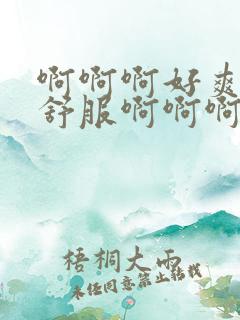 啊啊啊好爽
舒服啊啊啊
梧桐大雨
未经同意禁止转载